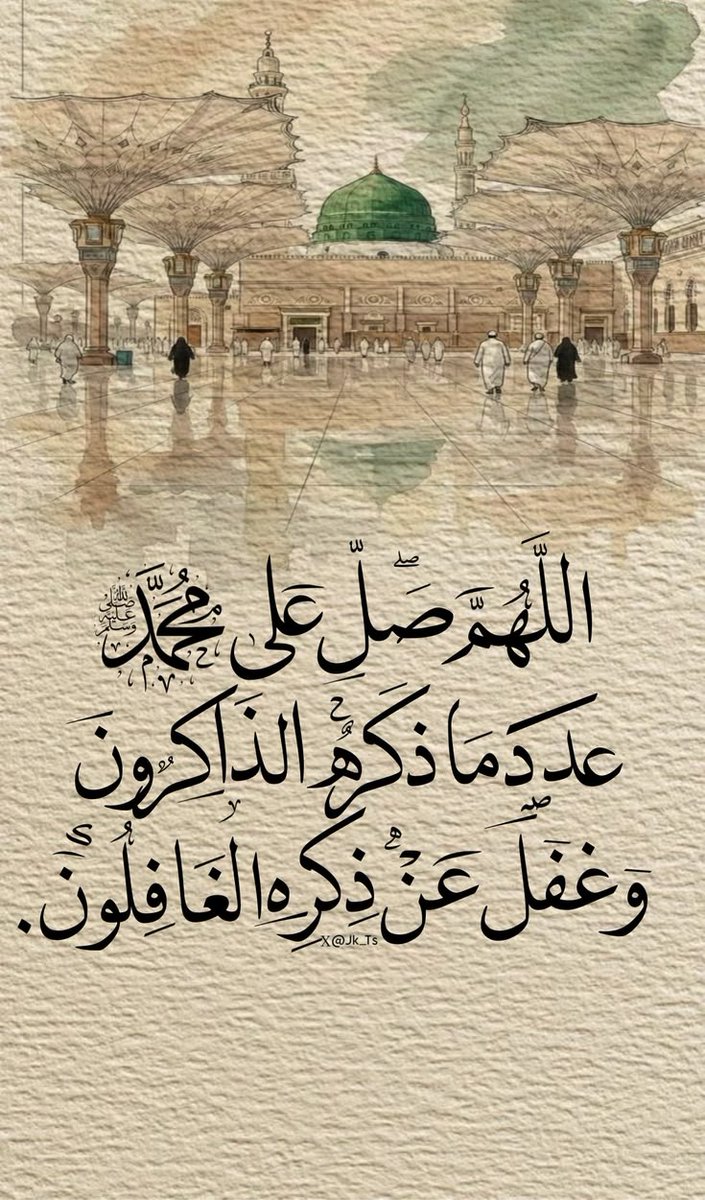 اللَّهُمَّ صَلِّ عَلى مُحَمَّدٍ ﷺ
عدد مَا ذَكَرَهُ الذَاكِرُونَ
وَغَفَلَ عَنْ ذِكرِهِ الغَافِلُونَ.
X@Jk_Ts